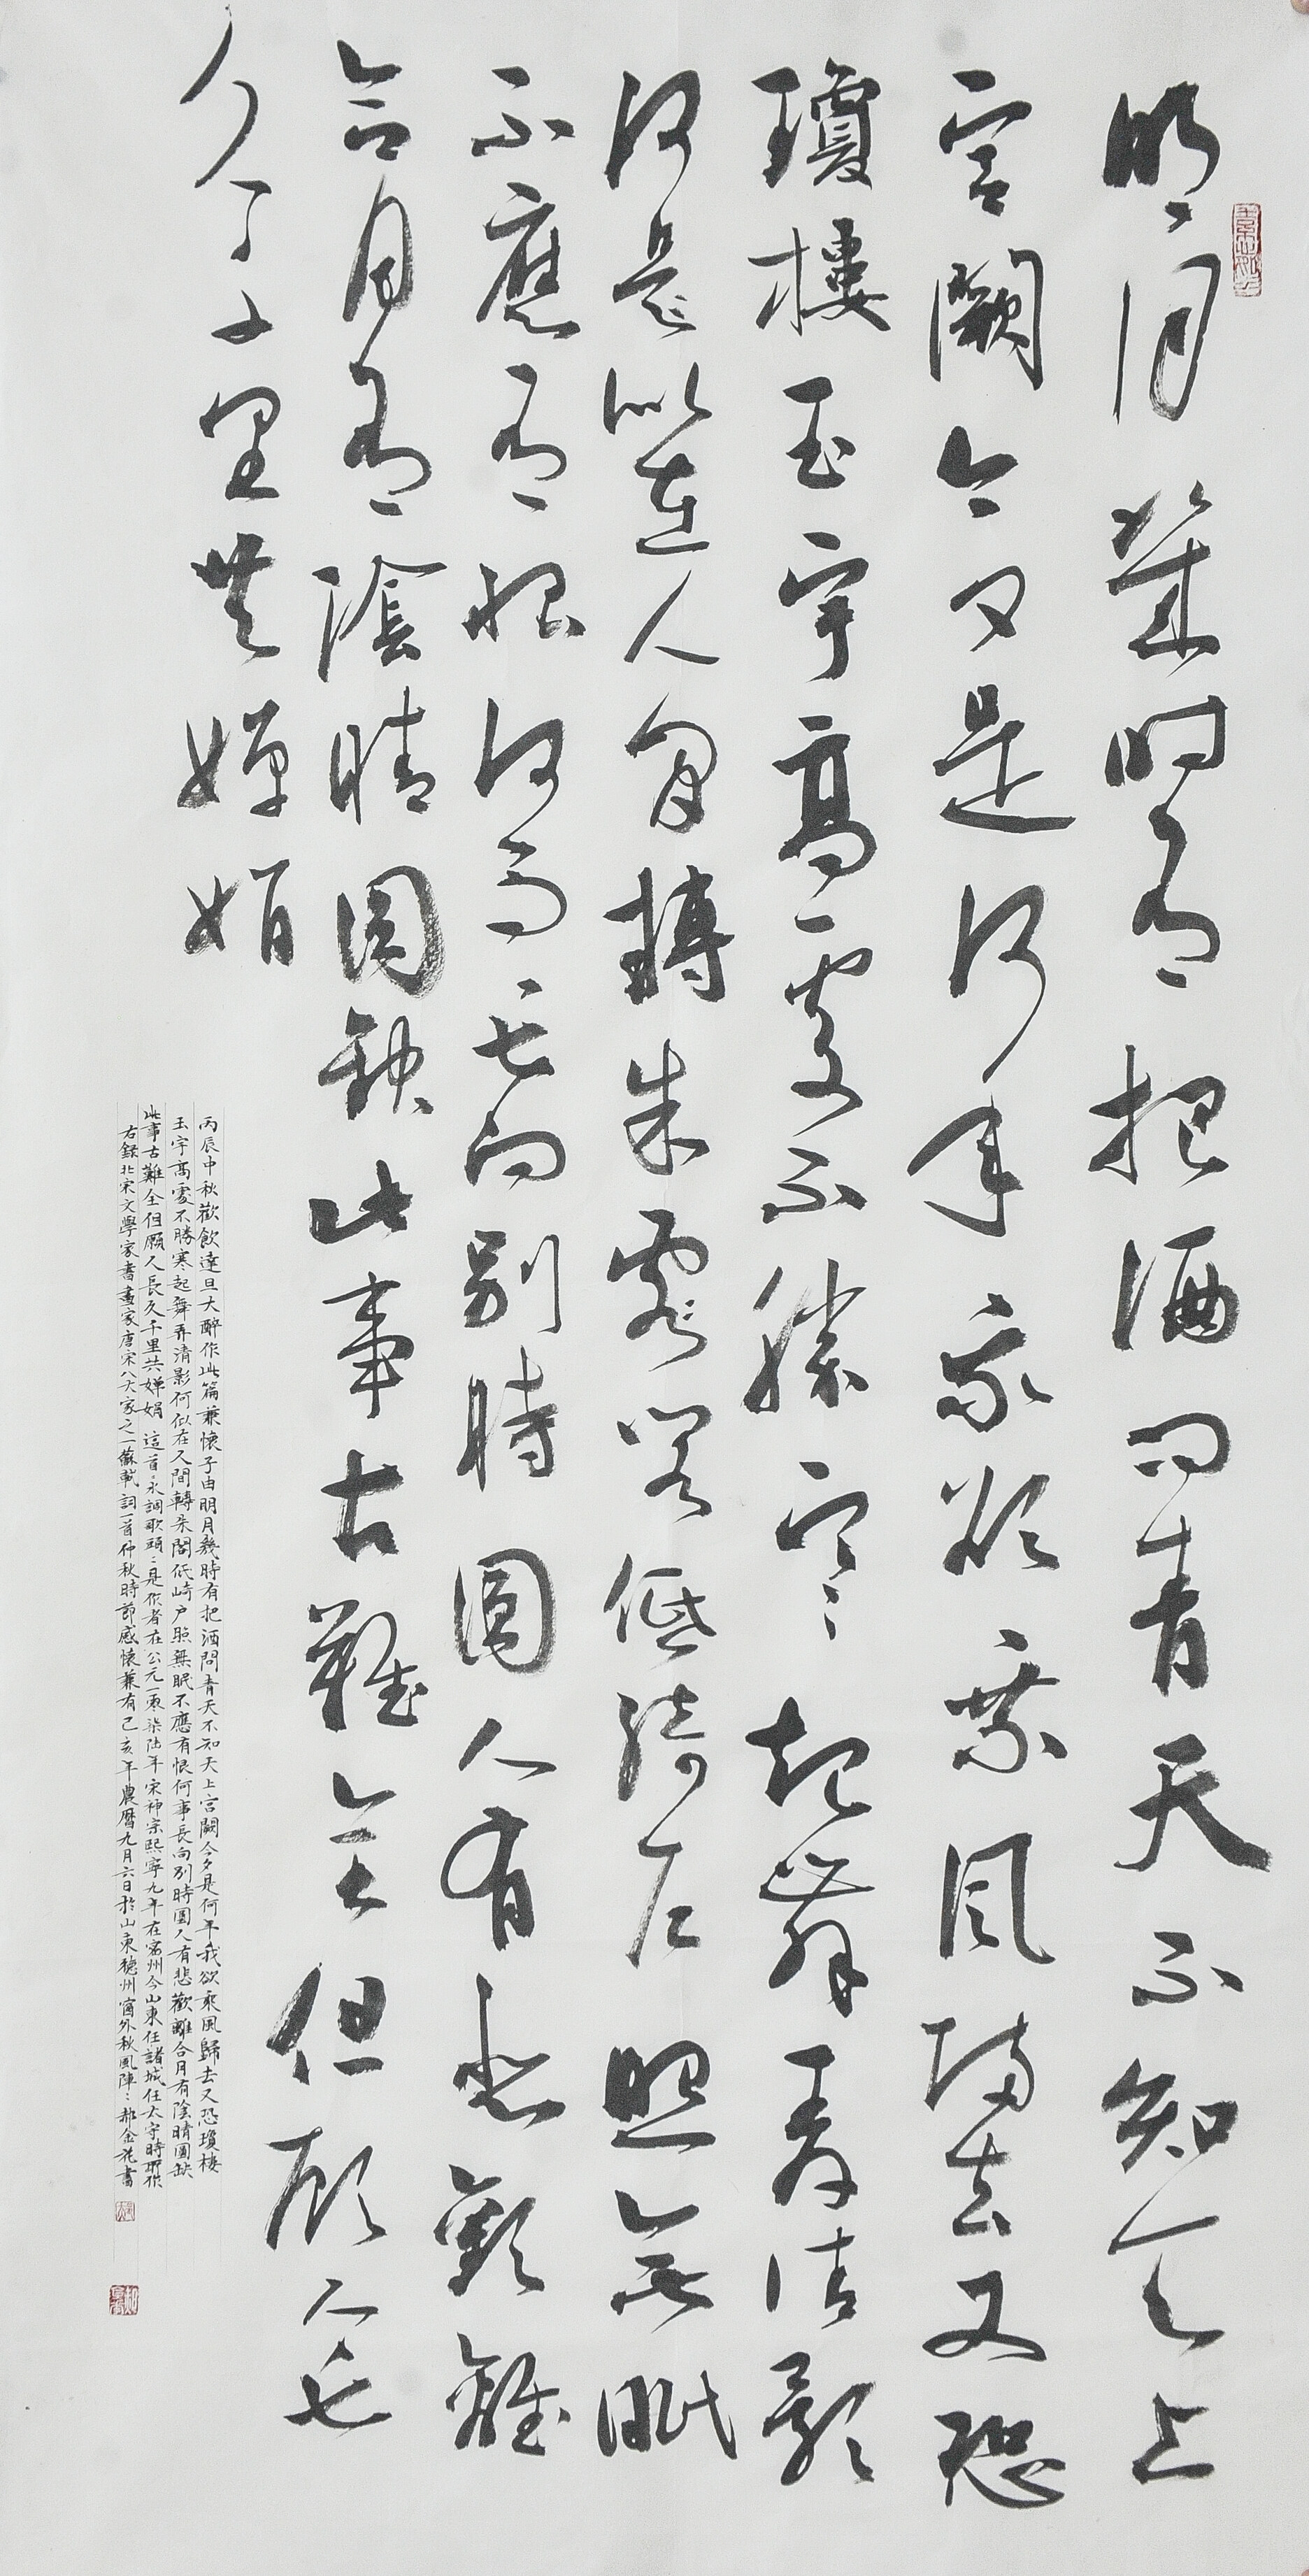 明月幾時有把酒問青天不知天上
宮闕今夕是何年我欲乘風歸去又恐
瓊樓玉宇高處不勝寒起舞弄清影
何似在人間轉朱閣低綺户照無眠
不應有恨何事長向别時圓人有悲歡離
合月有陰晴圆缺此事古難全但願人長
久千里共嬋娟
丙辰中秋歡飲達旦大醉作此篇兼懷子由明月幾時有把酒問青天不知天上宫闕今夕是何年我欲乘風歸去又恐瓊樓
玉宇高處不勝寒起舞弄清影何似在人間轉朱閣低崎户照無眠不應有恨何事長向别時圓人有悲歡離合月有陰晴圓缺
此事古難全但願人長久千里共嬋娟 這首水調歌頭是作者在公元一零柒陆年宋神宗熙寧九年在密州今山東任諸城任太守時所作
右錄北宋文學家書畫家唐宋八大家之一蘇軾詞一首仲秋時節感懷兼有己亥年農曆九月六日於山東德州窗外秋風陣〻郝金花書